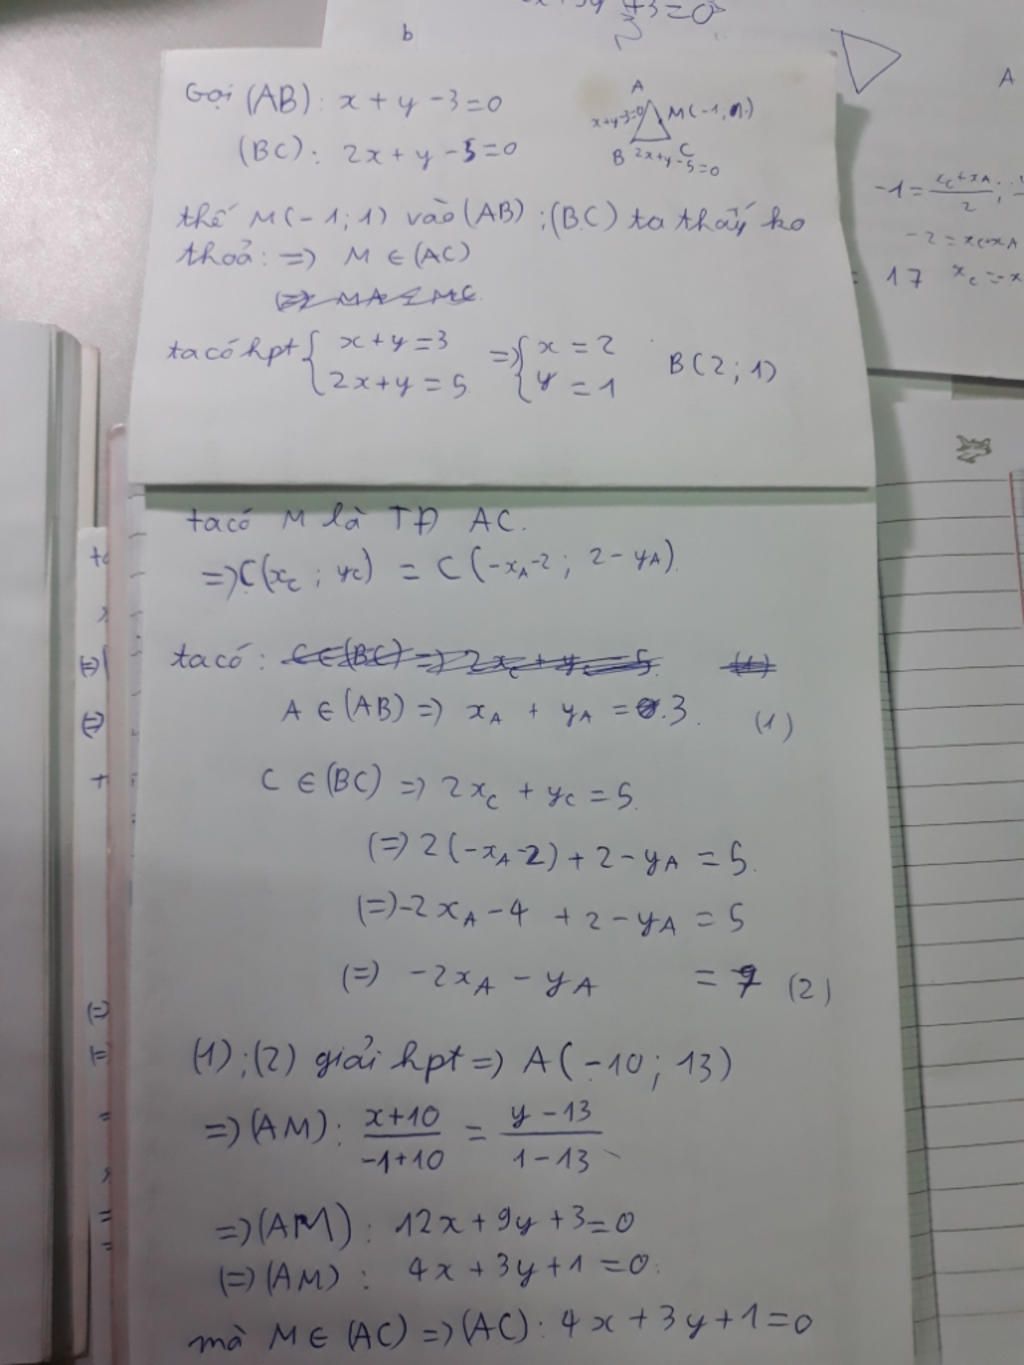 b
Gọi (AB): x + y - 3 = 0
(BC): 2x + y - 5 = 0
A
x+y-3=0
M(-1; 1)
B
C
2x+y-5=0
A
thế M(-1; 1) vào (AB); (BC) ta thấy ko
thoả: => M ∈ (AC)
(=> MA = MC
ta có hpt { x + y = 3 => { x = 2 B(2; 1)
2x + y = 5 y = 1
-2 = xC+xA
17
ta có M là TĐ AC.
=> C(xC; yC) = C(-xA-2; 2-yA)
ta có: C ∈ (BC) => 2xC + yC = 5 (1)
A ∈ (AB) => xA + yA = 3. (1)
C ∈ (BC) => 2xC + yC = 5.
(=) 2(-xA-2) + 2 - yA = 5.
(=) -2xA - 4 + 2 - yA = 5
(=) -2xA - yA = 7 (2)
(1); (2) giải hpt => A(-10; 13)
=> (AM): x+10 / -1+10 = y-13 / 1-13
=> (AM): 12x + 9y + 3 = 0
(=) (AM): 4x + 3y + 1 = 0.
mà M ∈ (AC) => (AC): 4x + 3y + 1 = 0